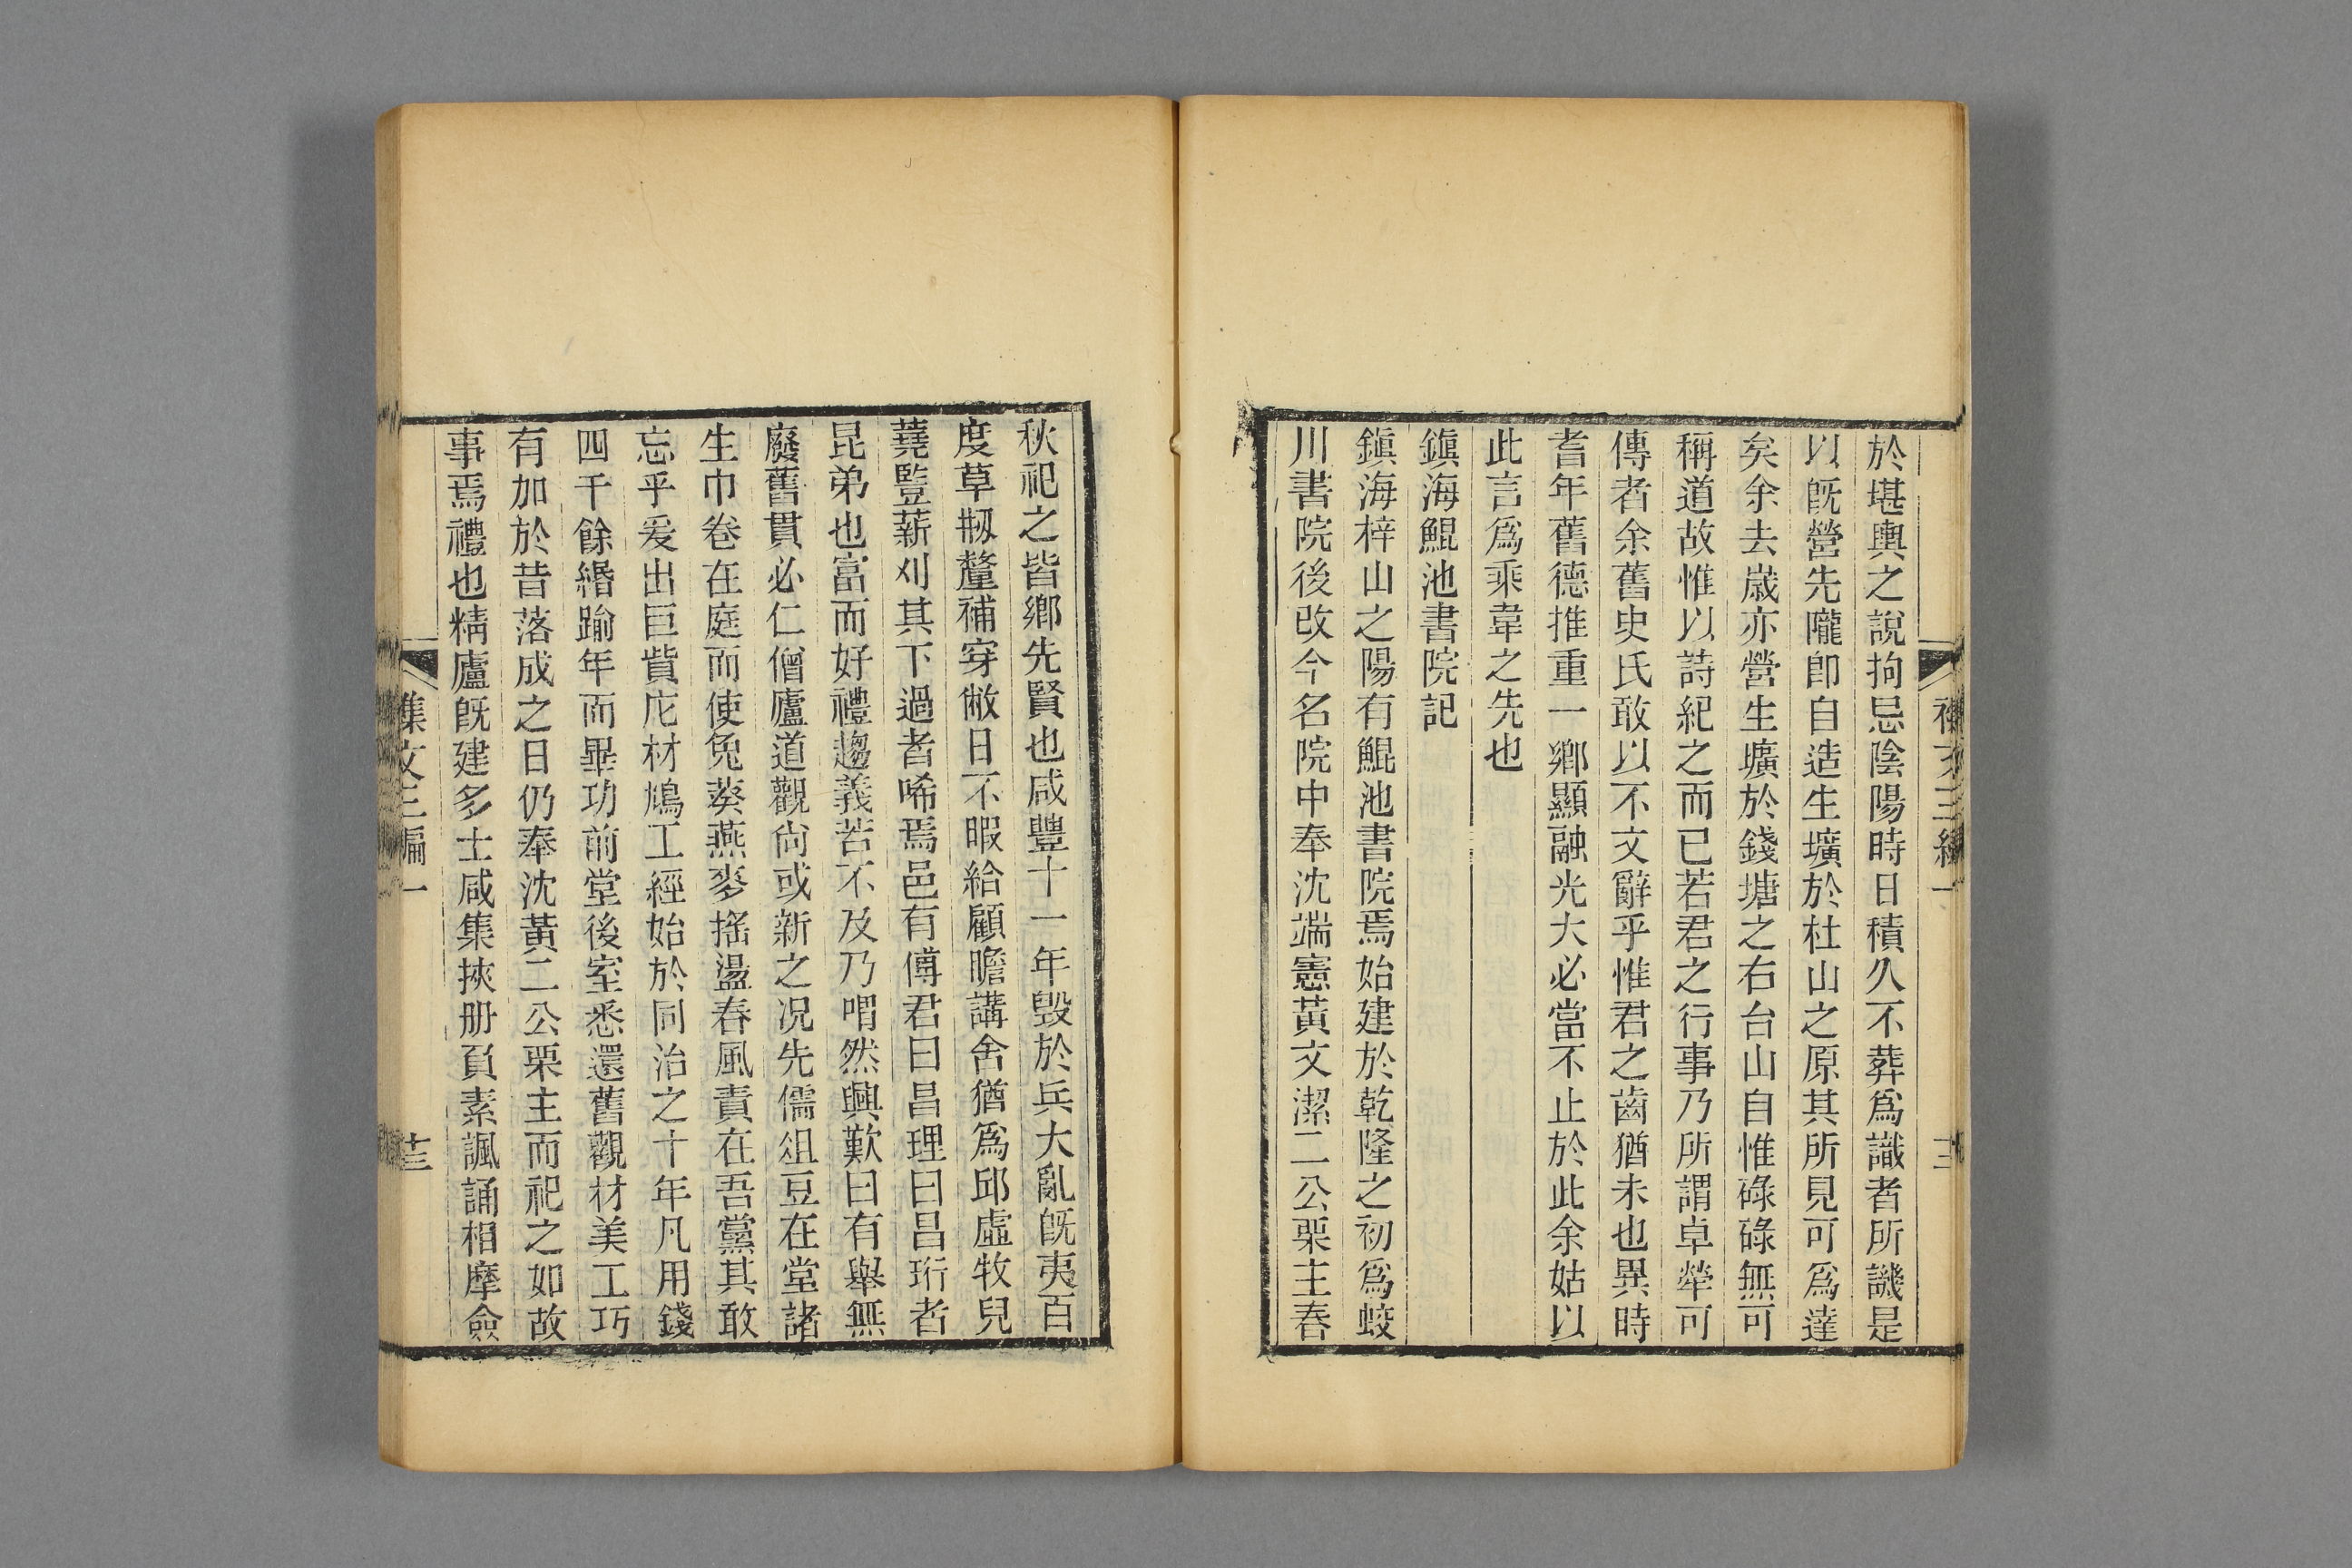 於堪輿之說拘忌陰陽時日積久不葬爲識者所譏是
以旣營先隴卽自造生壙於杜山之原其所見可爲達
矣余去歲亦營生壙於錢塘之右台山自惟碌碌無可
稱道故惟以詩紀之而已若君之行事乃所謂卓犖可
傳者余舊史氏敢以不文辭乎惟君之齒猶未也異時
耆年舊德推重一鄉顯融光大必當不止於此余姑以
此言爲乘韋之先也
鎭海鯤池書院記
鎭海梓山之陽有鯤池書院焉始建於乾隆之初爲蛟
川書院後改今名院中奉沈端憲黃文潔二公栗主春
秋祀之皆鄉先賢也咸豐十一年毁於兵大亂旣夷百
度草剏釐補穿敝日不暇給顧瞻講舍猶爲邱虛牧兒
蕘豎薪刈其下過者唏焉邑有傅君曰昌理曰昌珩者
昆弟也富而好禮趨義若不及乃喟然興歎曰有舉無
廢舊貫必仁僧廬道觀尙或新之况先儒俎豆在堂諸
生巾卷在庭而使兔葵燕麥搖盪春風責在吾黨其敢
忘乎爰出巨貲庀材鳩工經始於同治之十年凡用錢
四千餘緡踰年而畢功前堂後室悉還舊觀材美工巧
有加於昔落成之日仍奉沈黃二公栗主而祀之如故
事焉禮也精廬旣建多士咸集挾册負素諷誦相摩僉
集文三編一